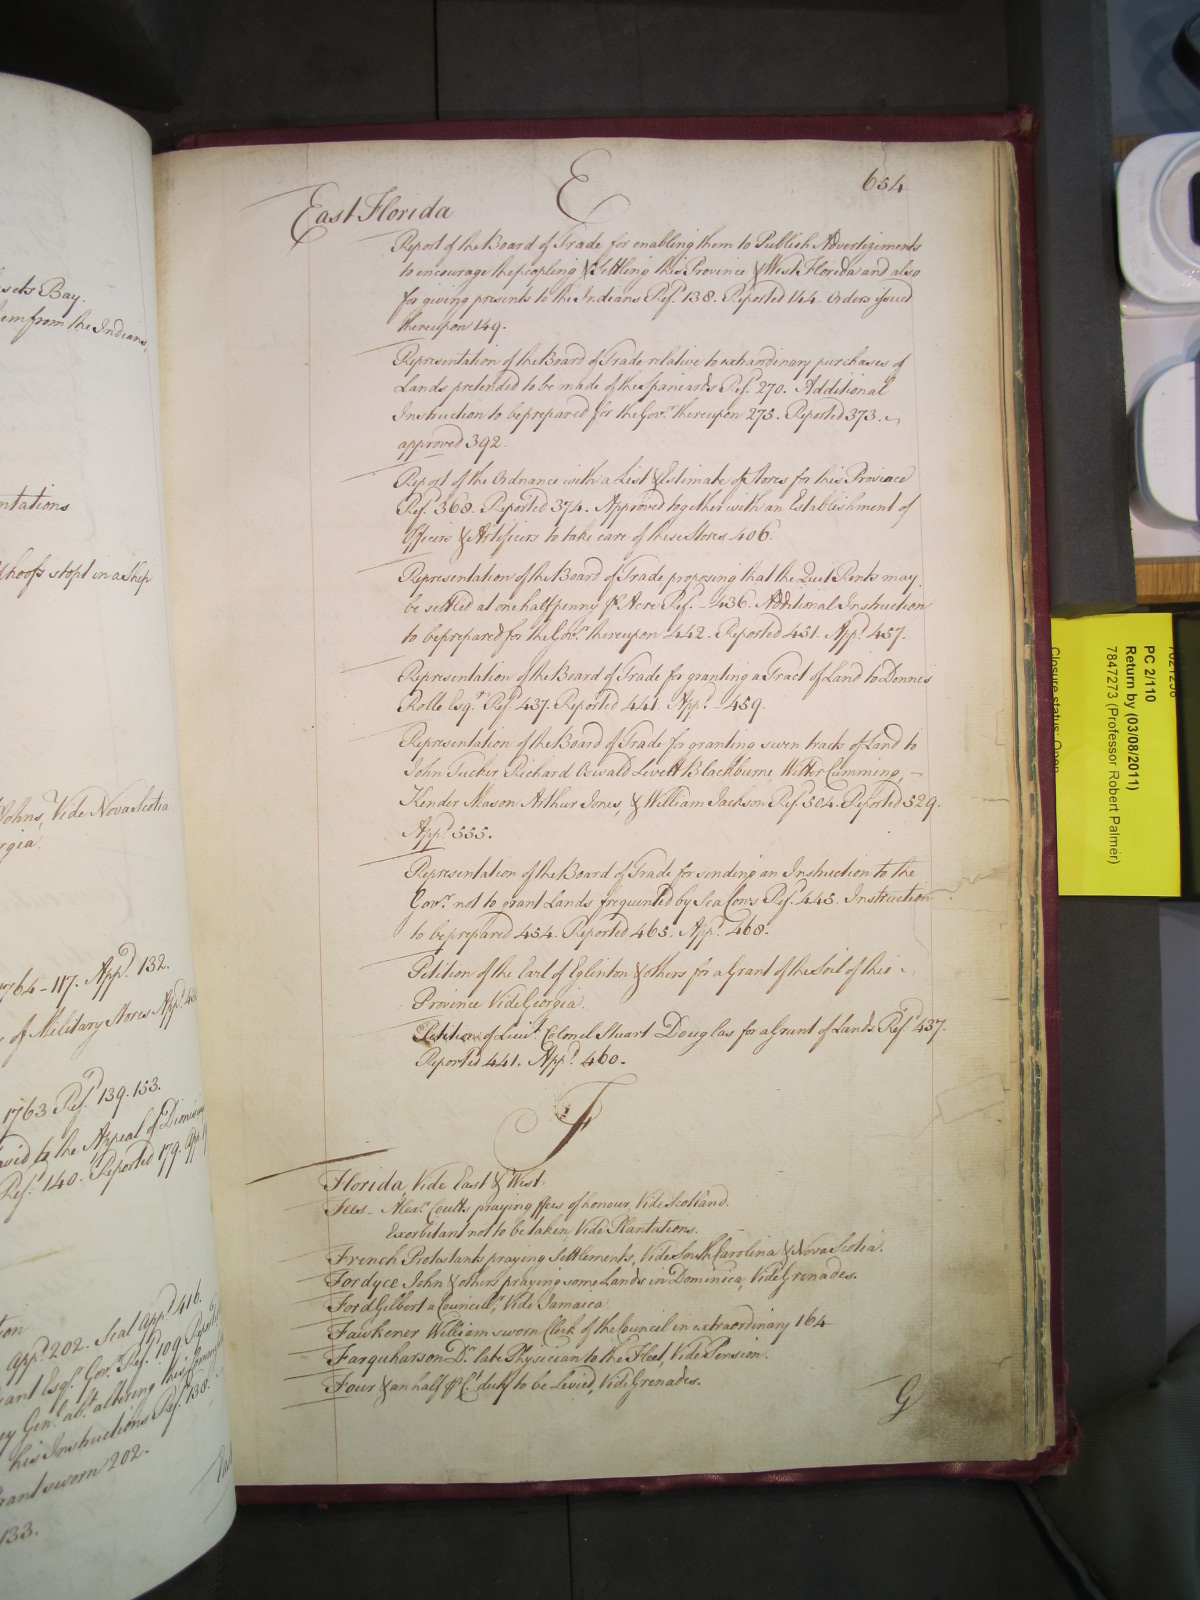 654
E
East Florida
Report of the Board of Trade for enabling them to Publish Advertizements
to encourage the peopling & Settling this Province & West Florida and also
for giving presents to the Indians Ref.d 138. Reported 144. Orders issued
thereupon 149.
Representation of the Board of Trade relative to extraordinary purchases of
Lands pretended to be made of the Spaniards Ref.d 270. Additional
Instruction to be prepared for the Gov.r thereupon 275. Reported 373.
approved 392.
Report of the Ordnance with a List & Estimate of Stores for this Province
Ref.d 368. Reported 374. Approved together with an Establishment of
Officers & Artificers to take care of these Stores 406.
Representation of the Board of Trade proposing that the Quit Rents may
be settled at one halfpenny P Acre Ref.d - 436. Additional Instruction
to be prepared for the Gov.r thereupon 442. Reported 451. App.d 457.
Representation of the Board of Trade for granting a Tract of Land to Dennis
Rolle Esq.r Ref.d 437. Reported 441. App.d - 459.
Representation of the Board of Trade for granting seven tracts of Land to
John Tucker, Richard Oswald Levett Blackburne Witter Cumming, -
Kender Mason Arthur Jones, & William Jackson Ref.d 504. Reported 529.
App.d 555.
Representation of the Board of Trade for sending an Instruction to the
Gov.r not to grant Lands frequented by Sea Cows Ref.d 445. Instruction
to be prepared 454. Reported 465. App.d 468.
Petition of the Earl of Eglinton & others for a Grant of the Soil of this
Province Vide Georgia.
Petition of Lieu.t Colonel Stuart Douglas for a Grant of Lands Ref.d 437.
Reported 441. App.d 460.
F
Florida, Vide East & West.
Fees - Alex.r Coutts praying ffees of honour, Vide Scotland.
Exorbitant not to be taken, Vide Plantations.
French Protestants praying Settlements, Vide South Carolina & Nova Scotia.
Fordyce John & others praying some Lands in Dominica, Vide Grenades.
Ford Gilbert a Councill.r, Vide Jamaica
Fawkener William sworn Clerk of the Council in extraordinary 164
Farquharson D.r late Physician to the Fleet, Vide Pension.
Four & an half P C.t duty to be Levied, Vide Grenades.
G
setts Bay.
them from the Indians,
ntations
hoops stopt in a Ship
Johns, Vide Nova Scotia
rgia
1764 - 117. App.d 132.
of Military Stores App.d
1763 Ref.d 139. 153.
to the Appeal of
Ref.d 140. Reported 179.
App.d 202. Seal App.d 416.
Esq.r Gov.r Ref.d 109
Gen.l ab.t altering his
his Instructions Ref.d 138.
Grant sworn 202.
133.
PC 2/110
Return by (03/08/2011)
7847273 (Professor Robert Palmer)
Closure status: Open